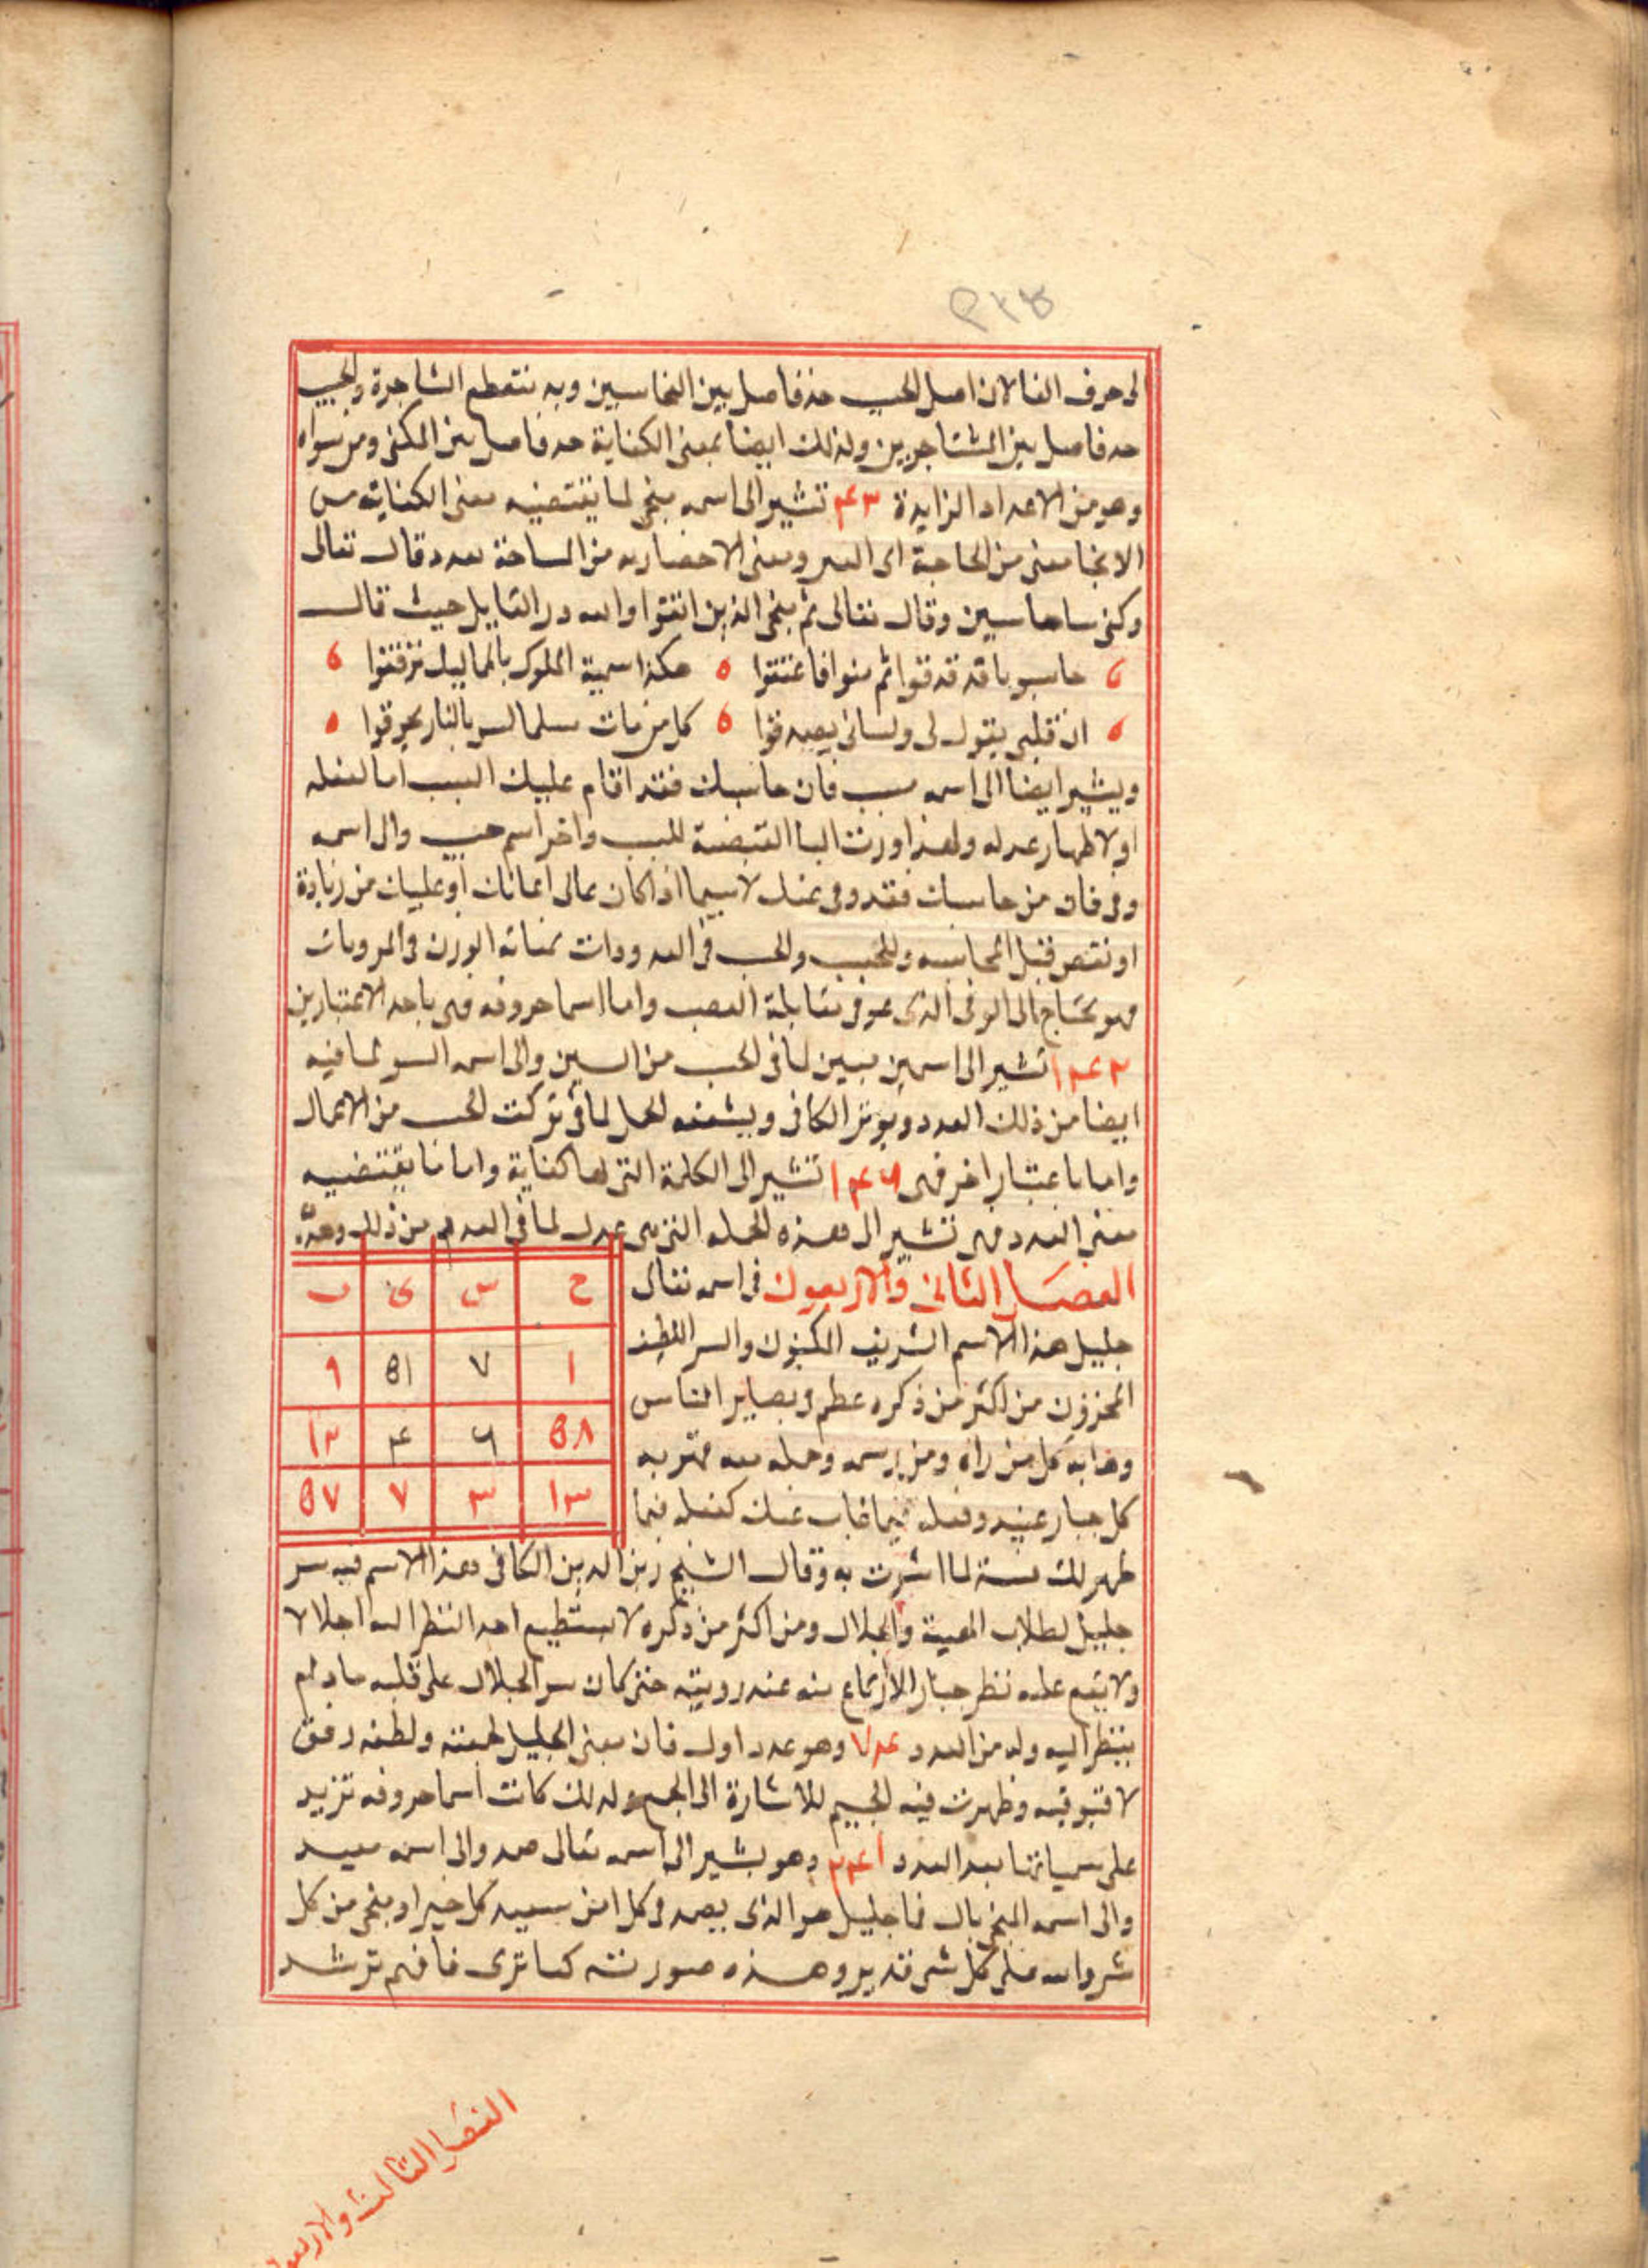 ٩٣٨
لى حرف الفا لان اصل الحب حد فاصل بين النحاسبين وبه تنقطع المشاجرة والحب
حد فاصل بين المتشاجرين ولذلك ايضا بمعنى الكفاية حد فاصل بين المكفى ومن سواه
وهو من الاعداد الزايدة ٤٣ تشير الى اسمه منجى لما يقتضيه معنى الكفاية من
الانجا معنى من الحاجة الى الغير ومعنى الاحضار به من الساحة بعده قال تعالى
وكفى بنا حاسبين وقال تعالى ثم ننجى الذين اتقوا ولله در القايل حيث قال
حاسبونا قد فدققوا ثم منوا فاعتقوا ه هكذا سمية الملوك بالمماليك ترفقوا
ان قلبى يقول لى ولسانى يصدقوا ه كل من مات مسلما ليس بالنار يحرقوا ه
ويشير ايضا الى اسمه فان حاسبك فقد اقام عليك السبب اما لفضله
او لاظهار عدله ولهذا اورثت البا القبضية للسبب واخر اسم حسيب والى اسمه
وفى فان من حاسبك فقد وفى عنك لاسيما اذا كان على اعمالك او عليك من زيادة
او نقص قبل المحاسبه والحسب والحب فى العدودات بمثابة الوزن فى الموزونات
فهو يحتاج الى الوفى الذى هو فى مقابلة الغصب واما اسما حروفه فهى باحد الاعتبارين
١٤٢ تشير الى اسمين مبين لما فى الحب من السين والى اسمه لما فيه
ايضا من ذلك العدد ويوتر الكافى ويشفعه لعل لما فى تركت الحب من الاعمال
واما باعتبار اخر فهى ١٤٦ تشير الى الكلمة التى لها كفاية واما ما يقتضيه
معنى العدد فهى تشير الى هذه الجملة التى هى عدل لما فى العدد من ذلك وهذه
ح س ى ب
١ ٧ ٥١ ٩
٥٨ ٦ ٤ ١٢
١٣ ٣ ٧ ٥٧
الفصل الثانى والاربعون فى اسمه تعالى
جليل هذا الاسم الشريف المكنون والسر اللطيف
المخزون من اكثر من ذكره عظم فى بصاير الناس
وهابه كل من راه ومن رسمه وحمله معه قهر به
كل جبار عنيد وفعله فيما غاب عنك كفعله فيما
ظهر لك منه لما اشرت به وقال الشيخ زين الدين الكافى هذا الاسم فيه سر
جليل لطلاب الهيبة والجلال ومن اكثر من ذكره لا يستطيع احد النظر اليه اجلالا
ولا يقع عليه نظر جبار الا ارتاع منه عند رويته حتى كان سر الجلال على قلبه ما دام
ينظر اليه وله من العدد ٧٣ وهو عدد اول فان معنى الجليل لهيبته ولطفه دقق
لا فوقيه وظهرت فيه الجيم للاشارة الى الجمع ولذلك كانت اسما حروفه تزيد
على مسمياتها بعد العدد وهو يشير الى اسمه تعالى صمد والى اسمه معيد
والى اسمه المنجى بال فا جليل هو الذى يصمد فى كل امر يعيد كل خير او ينجى من كل
شر والله على كل شى قدير وهذه صورته كما ترى فافهم ترشد
الفصل الثالث والاربعون